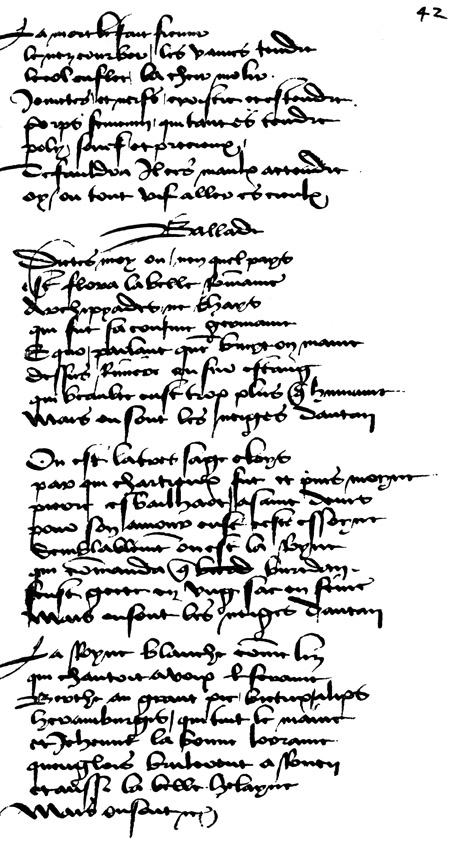 42
La mort le fait fremir
le nez courber les vaines tendre
le col enfler la cher molir
Joinctes et nerfs croistre et estendre
Corps femenin qui tant es tendre
poly souef et precieux
Te fauldra Il ces maulx attendre
oy ou tout vif aller es cieulx
Ballade
Dictes moy ou nen quel pays
Est flora la belle Romaine
Archipyades ne thays
qui fut sa cousine germaine
Equo parlant quāt bruyt on maine
dessus Riviere ou sus estang
qui beaulte eust trop plus q humaine
Mais ou sont les neiges dantan
Ou est la tres sage eloys
par qui fut et puis moyne
pierre esbailhart a saint denis
pour son amour eust ceste essoyne
Semblablemēt ou est la Royne
qui cōmanda q buridan
feust gecte en ung sac en seine
Mais ou sont les neiges dantan
La Royne blanche cōme lis
qui chantoit a voix de seraine
Berthe au grant pie bietrix alips
haramburgis qui tint le maine
et Jehanne la bonne lorraine
quenglois brulerent a Rouen
et aussi la belle helayne
Mais ou sont